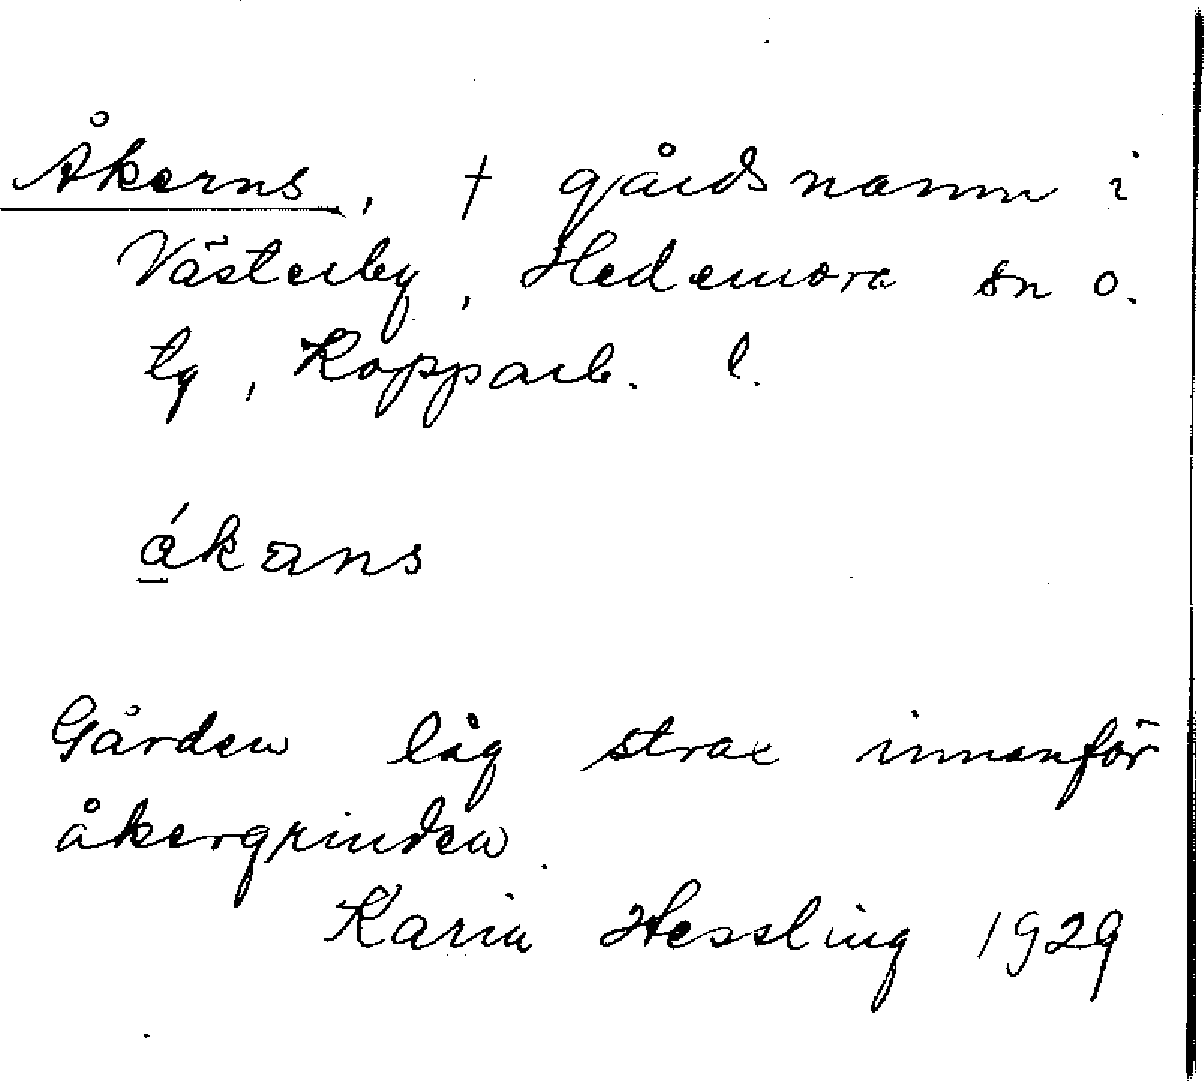 Åkerns, † gårdsnamn i
Västerby, Hedemora sn o.
tg, Kopparb. l.
åkans
Gården låg strax innanför
åkergrinden.
Karin Hessling 1929